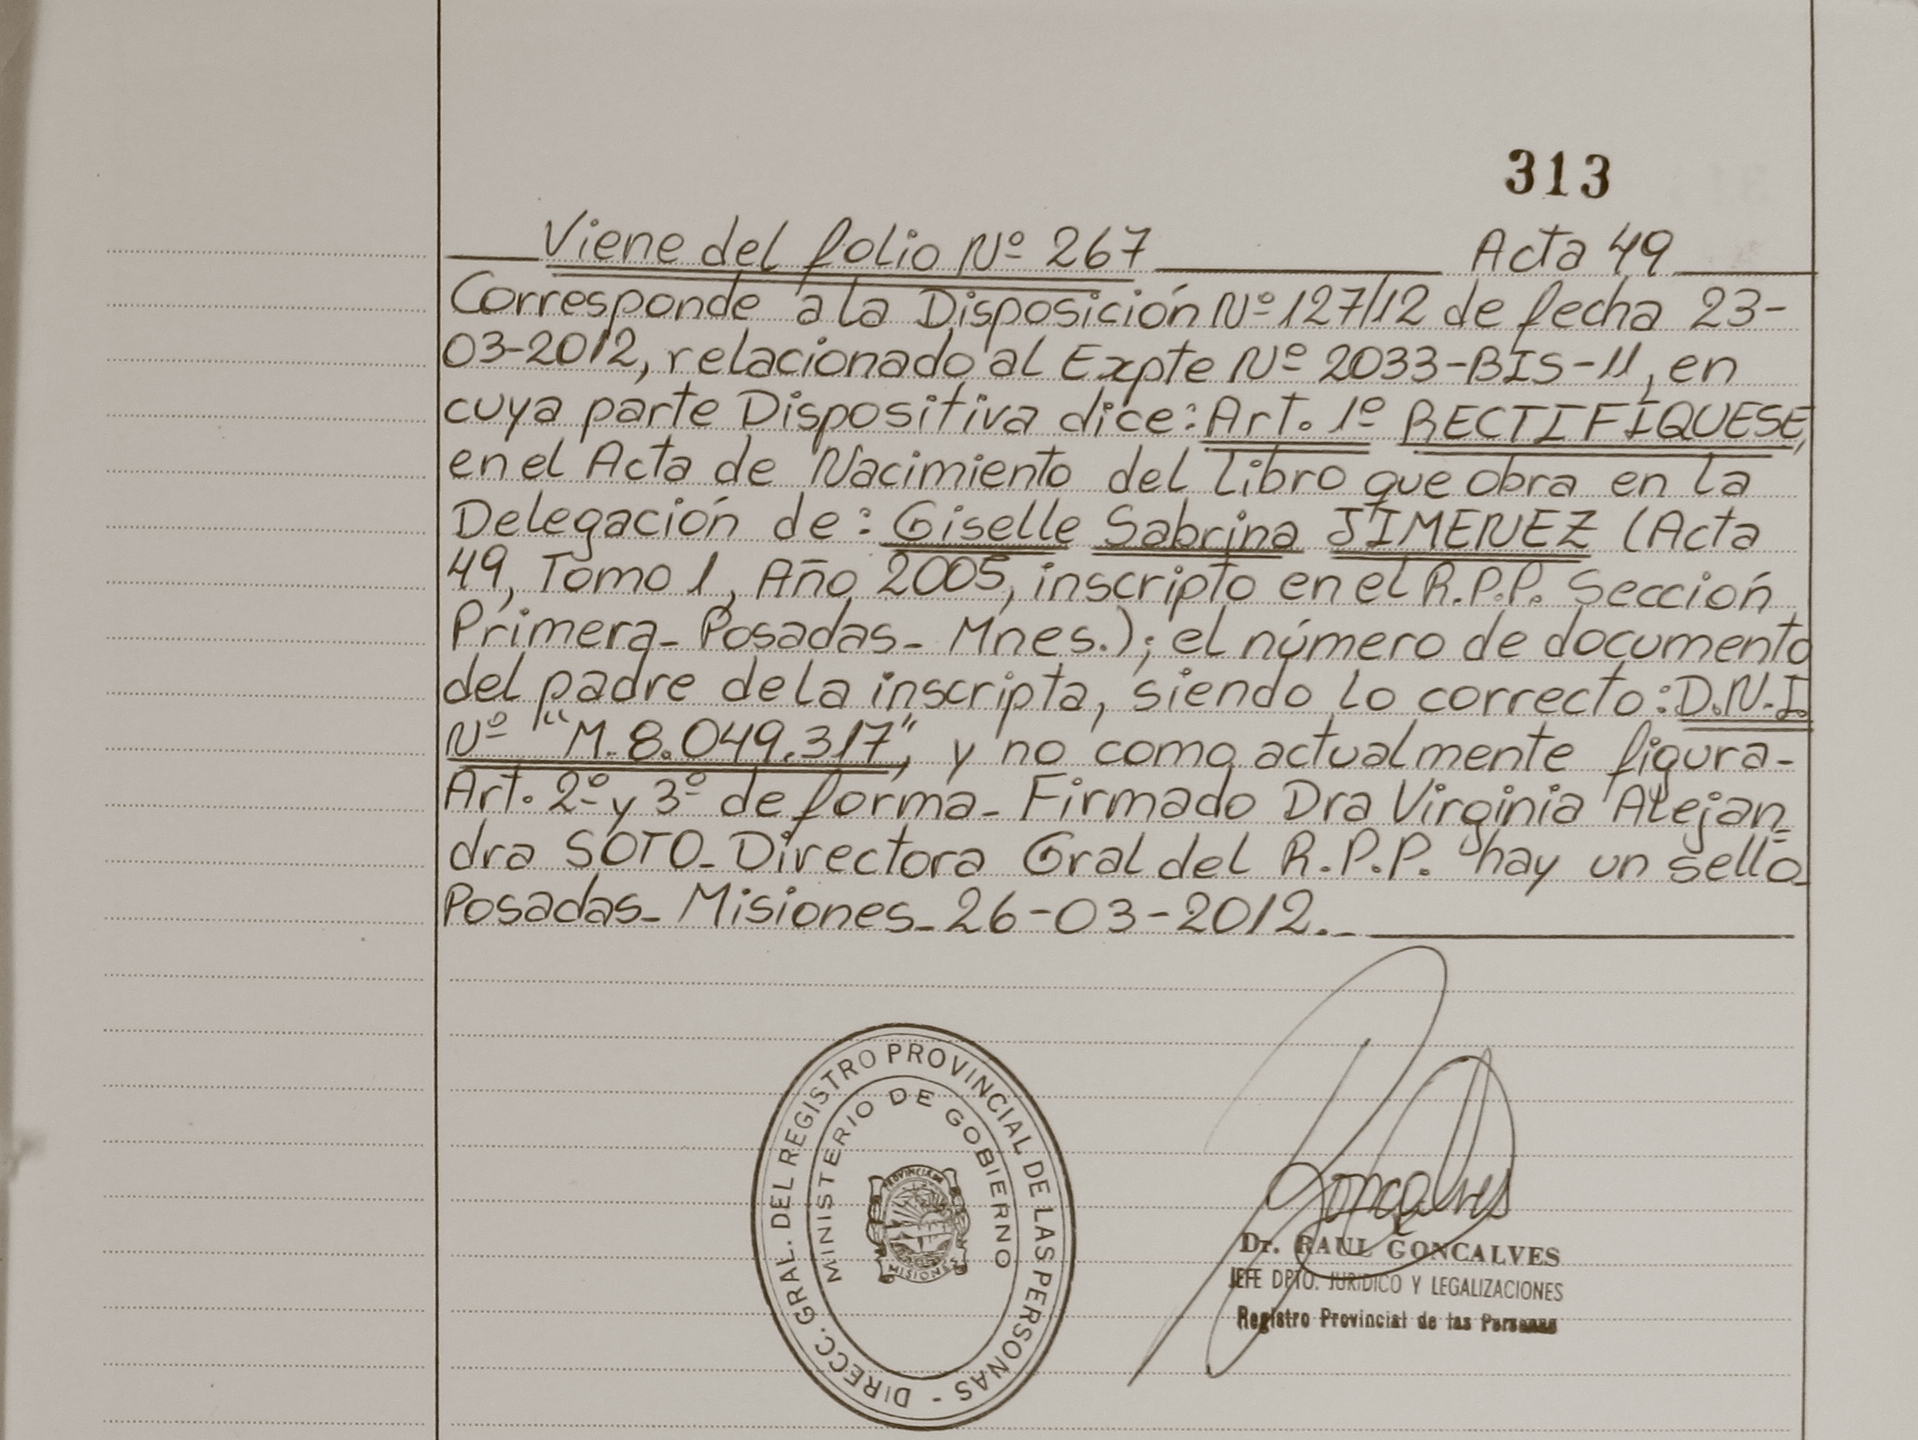 313
Viene del folio Nº 267 Acta 49
Corresponde a la Disposición Nº 127/12 de fecha 23-
03-2012, relacionado al Expte Nº 2033-BIS-11, en
cuya parte Dispositiva dice: Art. 1º RECTIFÍQUESE,
en el Acta de Nacimiento del libro que obra en la
Delegación de: Giselle Sabrina JIMENEZ (Acta
49, Tomo 1, Año 2005, inscripto en el R.P.P. Sección
Primera- Posadas- Mnes.); el número de documento
del padre de la inscripta, siendo lo correcto: D.N.I.
Nº "M.8.049.317", y no como actualmente figura-
Art. 2º y 3º de forma- Firmado Dra Virginia Alejan=
dra SOTO- Directora Gral del R.P.P. hay un sello-
Posadas- Misiones- 26-03-2012.-
DIRECC. GRAL. DEL REGISTRO PROVINCIAL DE LAS PERSONAS -
MINISTERIO DE GOBIERNO
PROVINCIA DE
MISIONES
Goncalves
Dr. RAUL GONCALVES
JEFE DPTO. JURIDICO Y LEGALIZACIONES
Registro Provincial de las Personas